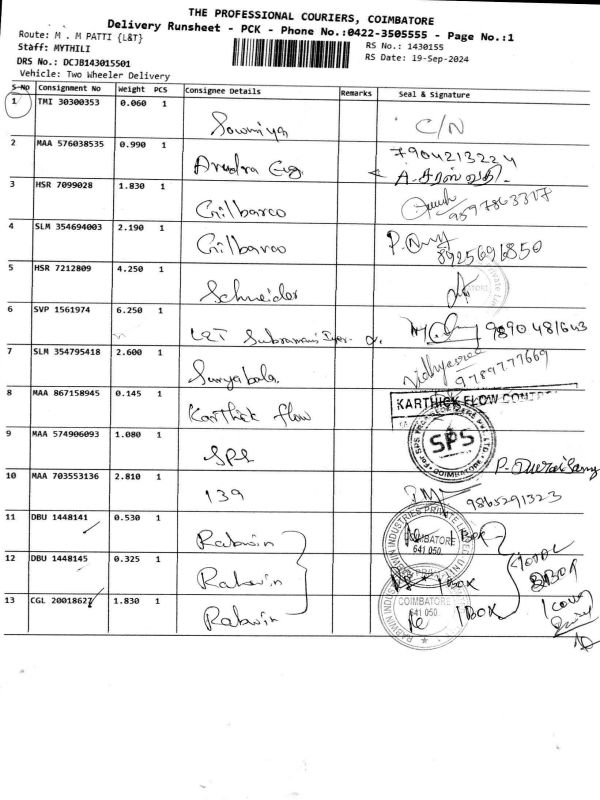 THE PROFESSIONAL COURIERS, COIMBATORE
Delivery Runsheet - PCK - Phone No.:0422-3505555 - Page No.:1
Route: M . M PATTI {L&T}
RS No.: 1430155
Staff: MYTHILI
RS Date: 19-Sep-2024
DRS No.: DCJB143015501
Vehicle: Two Wheeler Delivery
S-No Consignment No Weight PCS Consignee Details Remarks Seal & Signature
1 TMI 30300353 0.060 1 Sowmiya C/N
2 MAA 576038535 0.990 1 7904213224
3 HSR 7099028 1.830 1 Gilbarco 9597863317
4 SLM 354694003 2.190 1 Gilbarco 8925691850
5 HSR 7212809 4.250 1 Schneider
6 SVP 1561974 6.250 1 L&T
7 SLM 354795418 2.600 1 Suryabala. 9789777669
8 MAA 867158945 0.145 1 Karthick flow KARTHICK FLOW
9 MAA 574906093 1.080 1 SPS SPS
10 MAA 703553136 2.810 1 139 9865291323
11 DBU 1448141 0.530 1 Rabwin 1 BOX
12 DBU 1448145 0.325 1 Rabwin 1 BOX
13 CGL 20018627 1.830 1 Rabwin 1 BOX
COIMBATORE
641 050